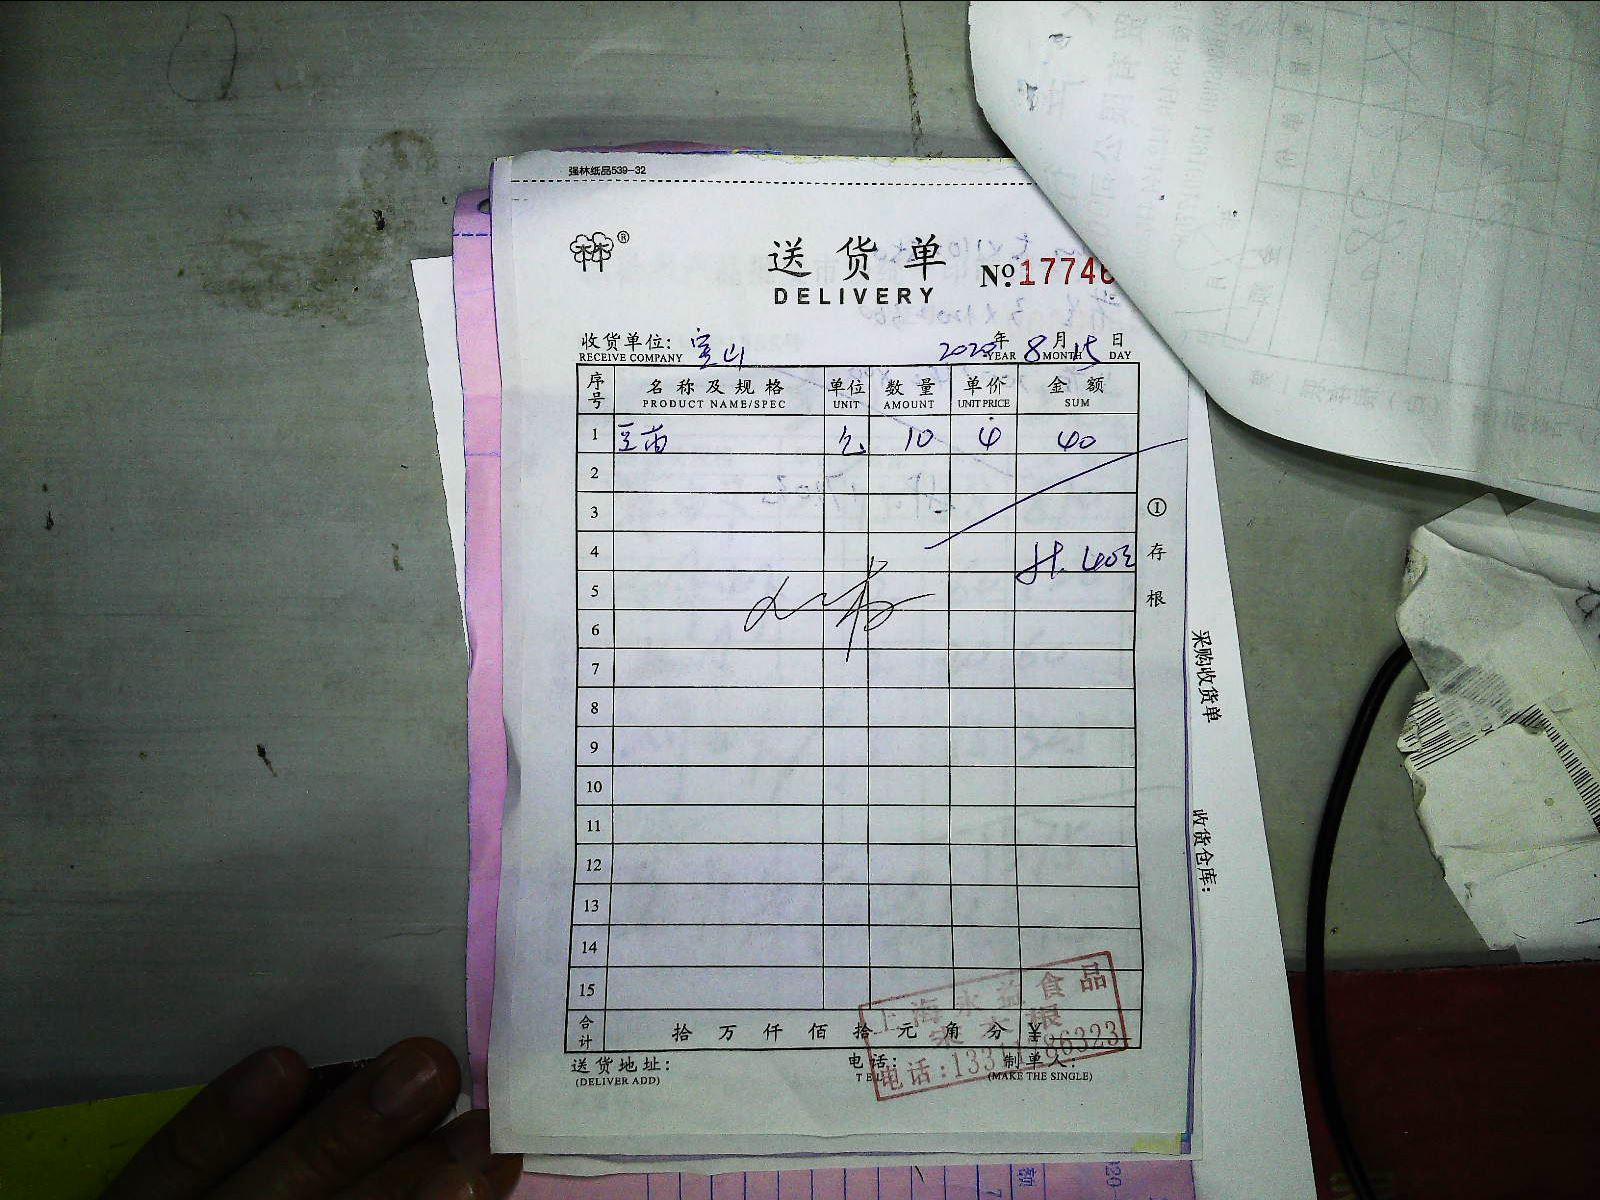 强林纸品539-32
送货单
DELIVERY
№17746
收货单位: 宝山
RECEIVE COMPANY
2020年 8月 15日
YEAR MONTH DAY
序号 名称及规格 单位 数量 单价 金额
PRODUCT NAME/SPEC UNIT AMOUNT UNIT PRICE SUM
1 豆苗 包 10 4 40
2
3
4 计. 40元
5
6
7
8
9
10
11
12
13
14
15
合计 拾 万 仟 佰 拾 元 角 分 ¥
送货地址: 电话: 制单人:
(DELIVER ADD) TEL (MAKE THE SINGLE)
① 存根
上海永益食品
电话:133
86323
采购收货单
收货仓库: